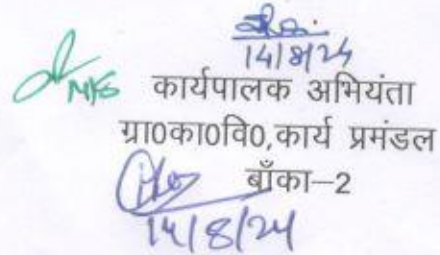 14/8/24
कार्यपालक अभियंता
ग्रा0का0वि0,कार्य प्रमंडल
बाँका–2
14/8/24